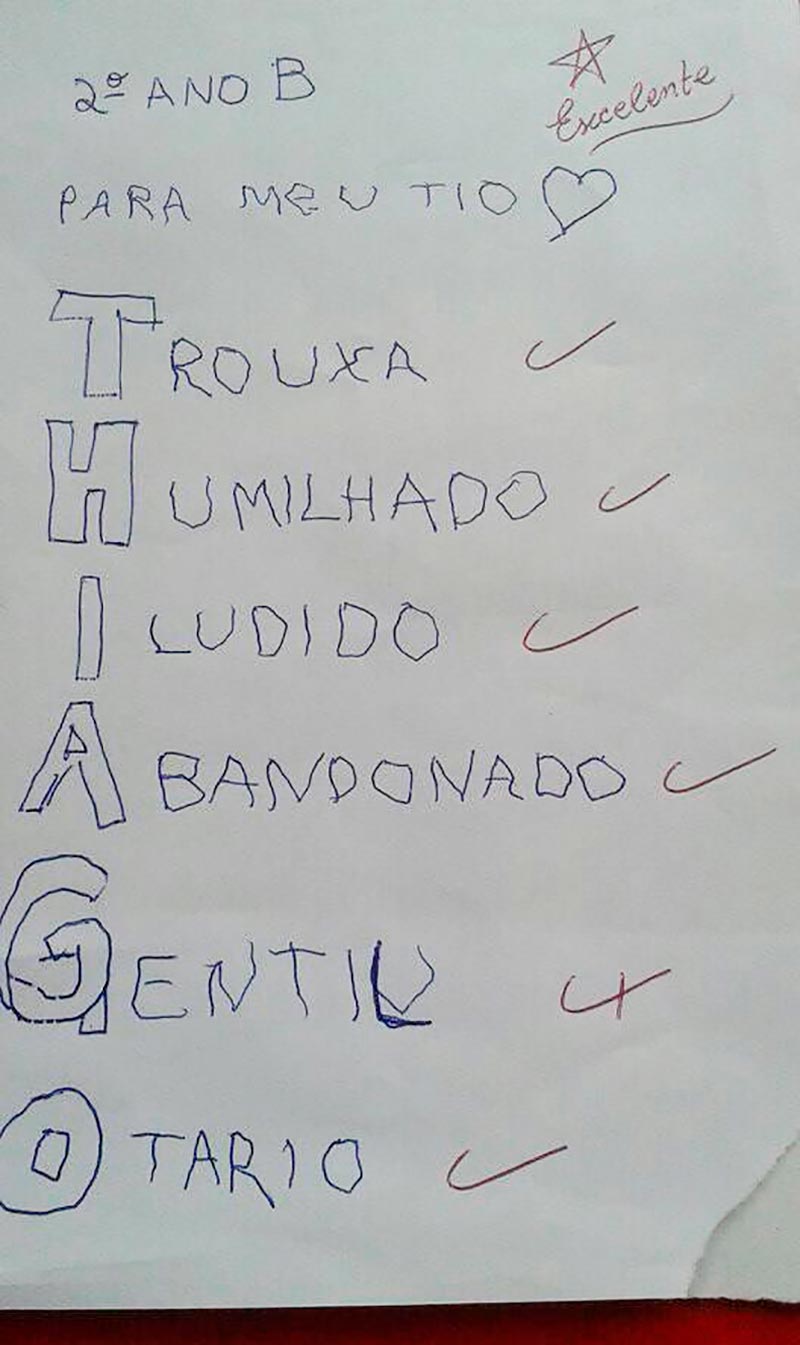 2º ANO B
Excelente
PARA MEU TIO
TROUXA
HUMILHADO
ILUDIDO
ABANDONADO
GENTIL
OTARIO